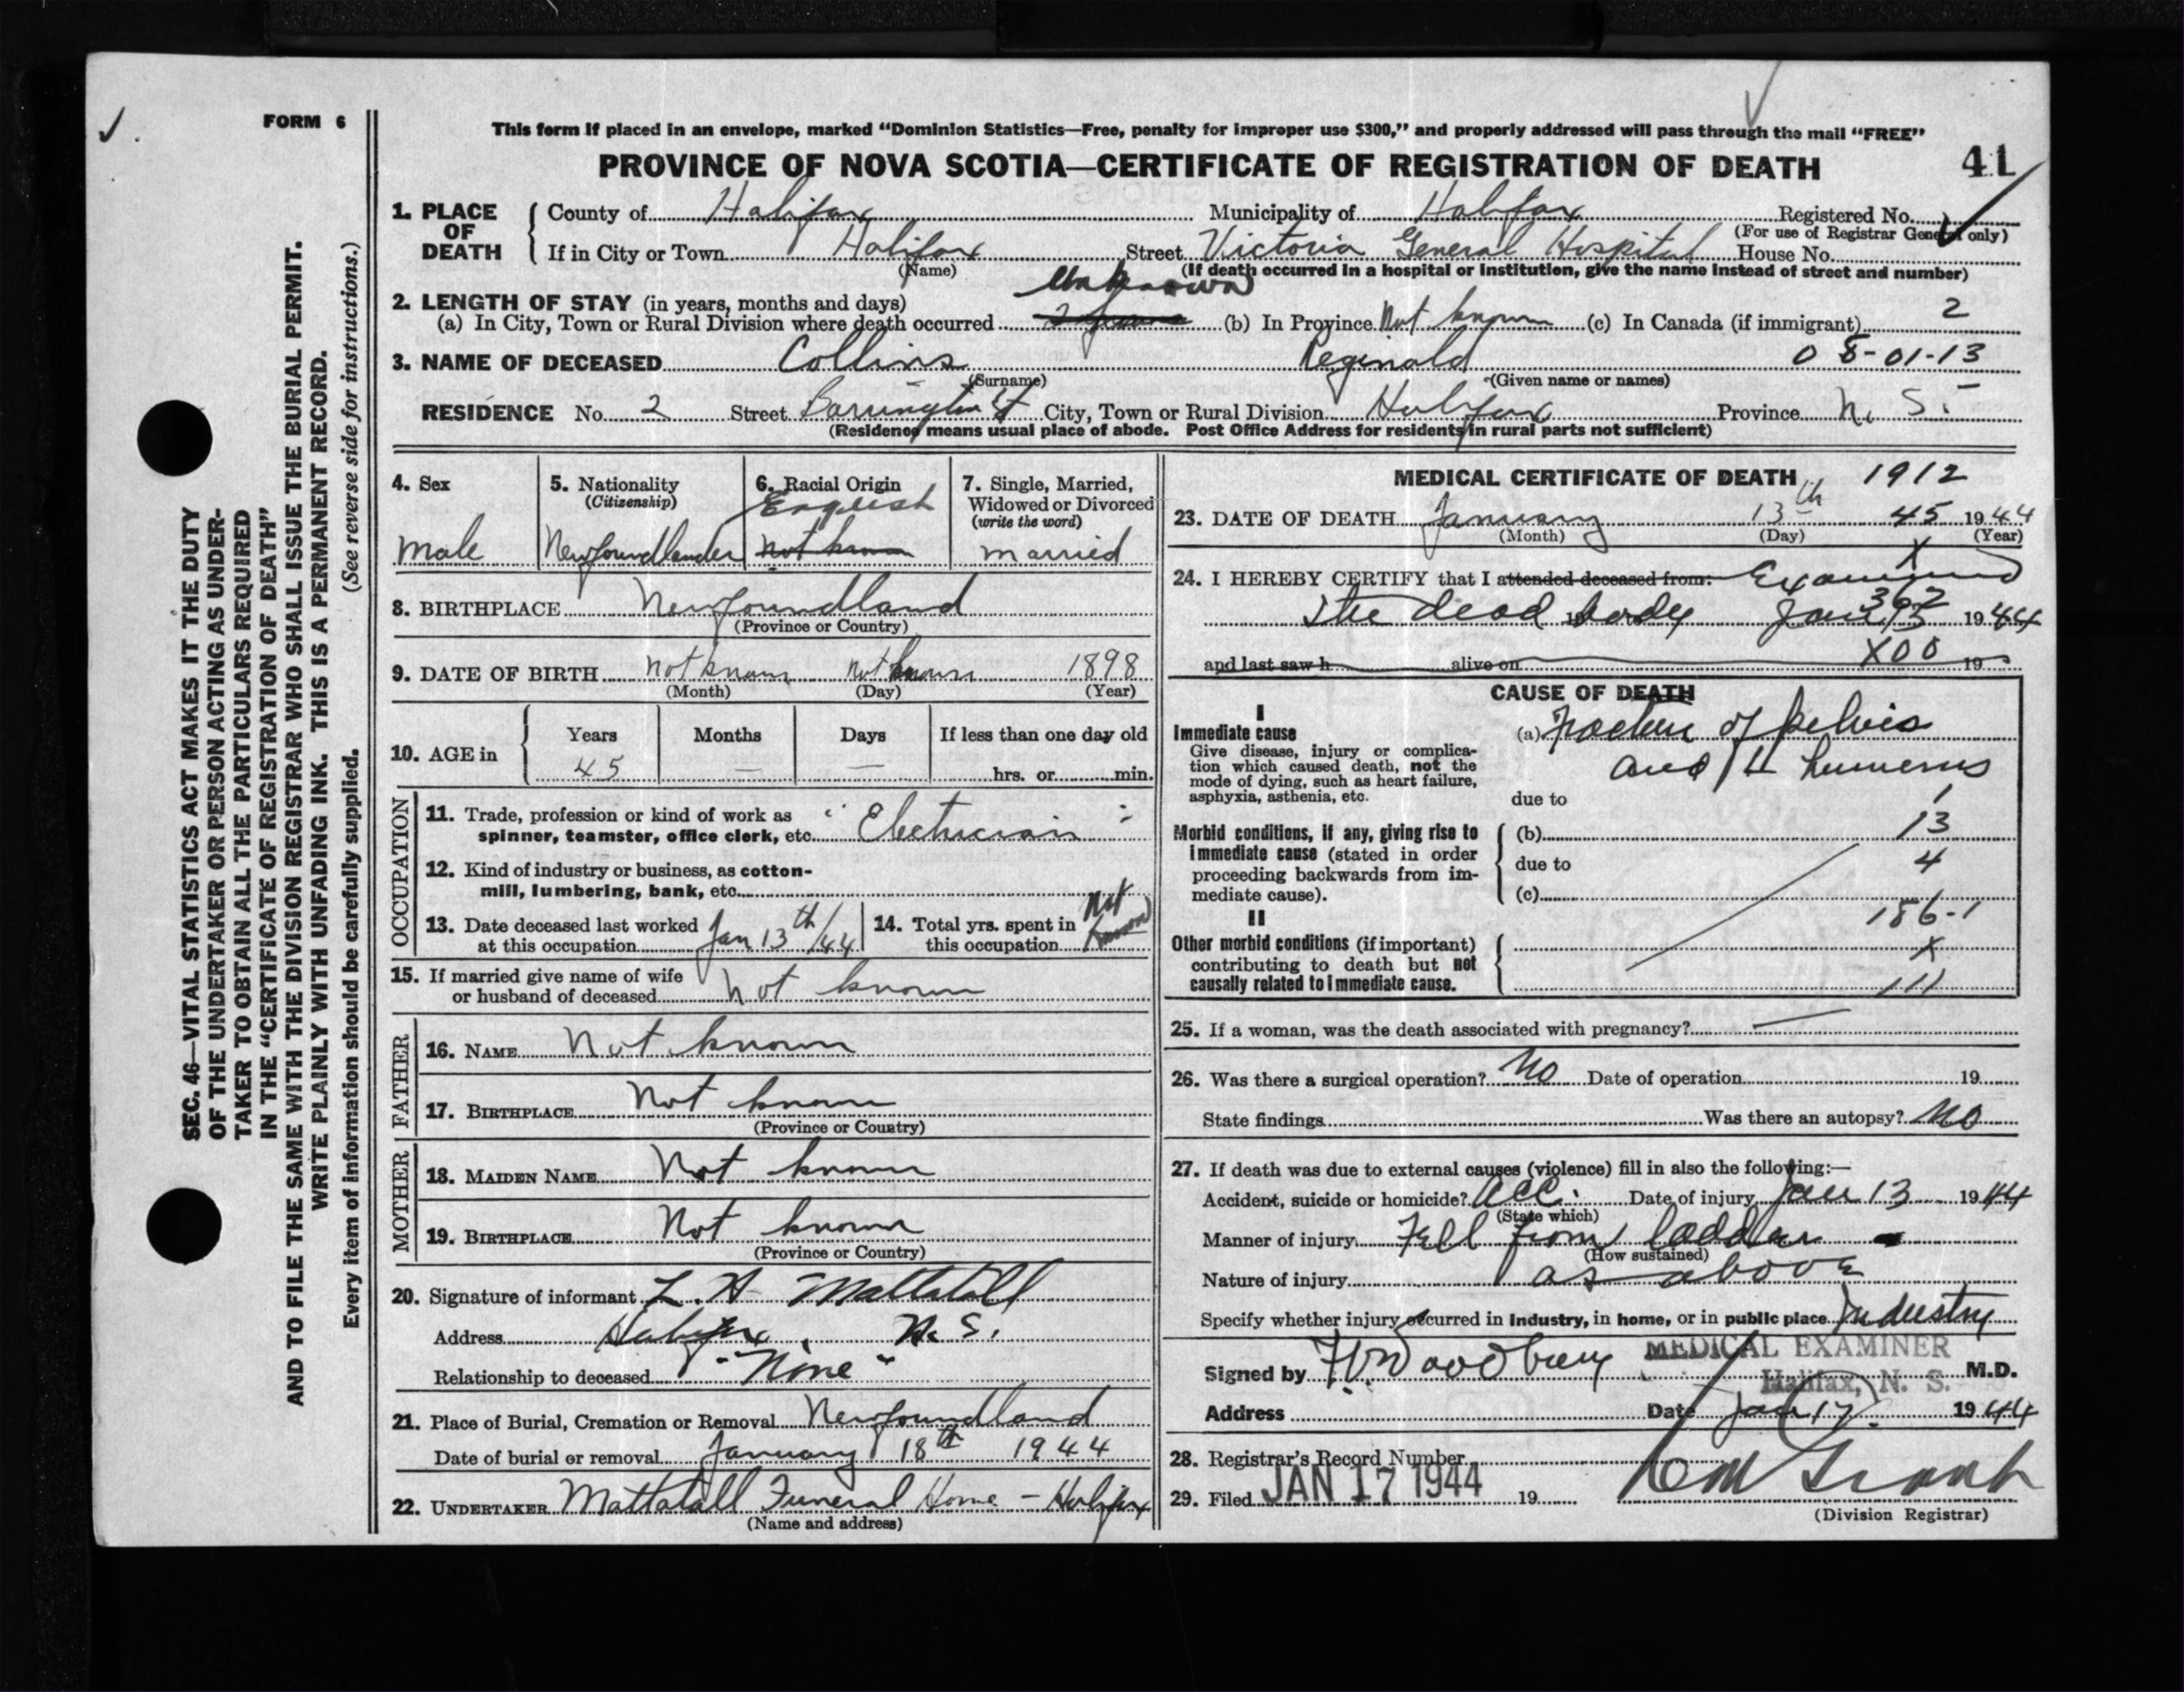 FORM 6
This form if placed in an envelope, marked "Dominion Statistics—Free, penalty for improper use $300," and properly addressed will pass through the mail "FREE"
PROVINCE OF NOVA SCOTIA—CERTIFICATE OF REGISTRATION OF DEATH 41
SEC. 46—VITAL STATISTICS ACT MAKES IT THE DUTY
OF THE UNDERTAKER OR PERSON ACTING AS UNDER-
TAKER TO OBTAIN ALL THE PARTICULARS REQUIRED
IN THE "CERTIFICATE OF REGISTRATION OF DEATH"
AND TO FILE THE SAME WITH THE DIVISION REGISTRAR WHO SHALL ISSUE THE BURIAL PERMIT.
WRITE PLAINLY WITH UNFADING INK. THIS IS A PERMANENT RECORD.
Every item of information should be carefully supplied. (See reverse side for instructions.)
1. PLACE OF DEATH
County of Halifax Municipality of Halifax Registered No.
(For use of Registrar General only)
If in City or Town Halifax Street Victoria General Hospital House No.
(Name) (If death occurred in a hospital or institution, give the name instead of street and number)
2. LENGTH OF STAY (in years, months and days) Unknown
(a) In City, Town or Rural Division where death occurred (b) In Province Not known (c) In Canada (if immigrant) 2
3. NAME OF DECEASED Collins Reginald 08-01-13
(Surname) (Given name or names)
RESIDENCE No. 2 Street Barrington St City, Town or Rural Division Halifax Province N. S.
(Residence means usual place of abode. Post Office Address for residents in rural parts not sufficient)
4. Sex
Male
5. Nationality
(Citizenship)
Newfoundlander
6. Racial Origin
English
not known
7. Single, Married,
Widowed or Divorced
(write the word)
married
8. BIRTHPLACE Newfoundland
(Province or Country)
9. DATE OF BIRTH not known not known 1898
(Month) (Day) (Year)
10. AGE in
Years Months Days If less than one day old
45 — — hrs. or min.
OCCUPATION
11. Trade, profession or kind of work as
spinner, teamster, office clerk, etc. Electrician
12. Kind of industry or business, as cotton-
mill, lumbering, bank, etc.
13. Date deceased last worked
at this occupation Jan 13th/44
14. Total yrs. spent in
this occupation Not known
15. If married give name of wife
or husband of deceased Not known
FATHER
16. NAME Not known
17. BIRTHPLACE Not known
(Province or Country)
MOTHER
18. MAIDEN NAME Not known
19. BIRTHPLACE Not known
(Province or Country)
20. Signature of informant L. A. Mattatall
Address Halifax, N. S.
Relationship to deceased "None"
21. Place of Burial, Cremation or Removal Newfoundland
Date of burial or removal January 18th 1944
22. UNDERTAKER Mattatall Funeral Home - Halifax
(Name and address)
MEDICAL CERTIFICATE OF DEATH 1912
23. DATE OF DEATH January 13th 45 1944
(Month) (Day) (Year)
24. I HEREBY CERTIFY that I attended deceased from: Examined X
the dead body Jan 13 362 1944
and last saw h alive on X00 19
CAUSE OF DEATH
I
Immediate cause
Give disease, injury or complica-
tion which caused death, not the
mode of dying, such as heart failure,
asphyxia, asthenia, etc.
(a) Fracture of pelvis
and humerus
due to 1
Morbid conditions, if any, giving rise to
immediate cause (stated in order
proceeding backwards from im-
mediate cause).
(b) 13
due to 4
(c)
186-1
II
Other morbid conditions (if important)
contributing to death but not
causally related to immediate cause.
X
111
25. If a woman, was the death associated with pregnancy? —
26. Was there a surgical operation? No Date of operation 19
State findings Was there an autopsy? No
27. If death was due to external causes (violence) fill in also the following:—
Accident, suicide or homicide? Acc. Date of injury Jan 13 1944
(State which)
Manner of injury Fell from ladder
(How sustained)
Nature of injury as above
Specify whether injury occurred in industry, in home, or in public place Industry
Signed by F.V. Woodbury MEDICAL EXAMINER M.D.
Halifax, N. S.
Address Date Jan 17. 1944
28. Registrar's Record Number
29. Filed JAN 17 1944 19
(Division Registrar)